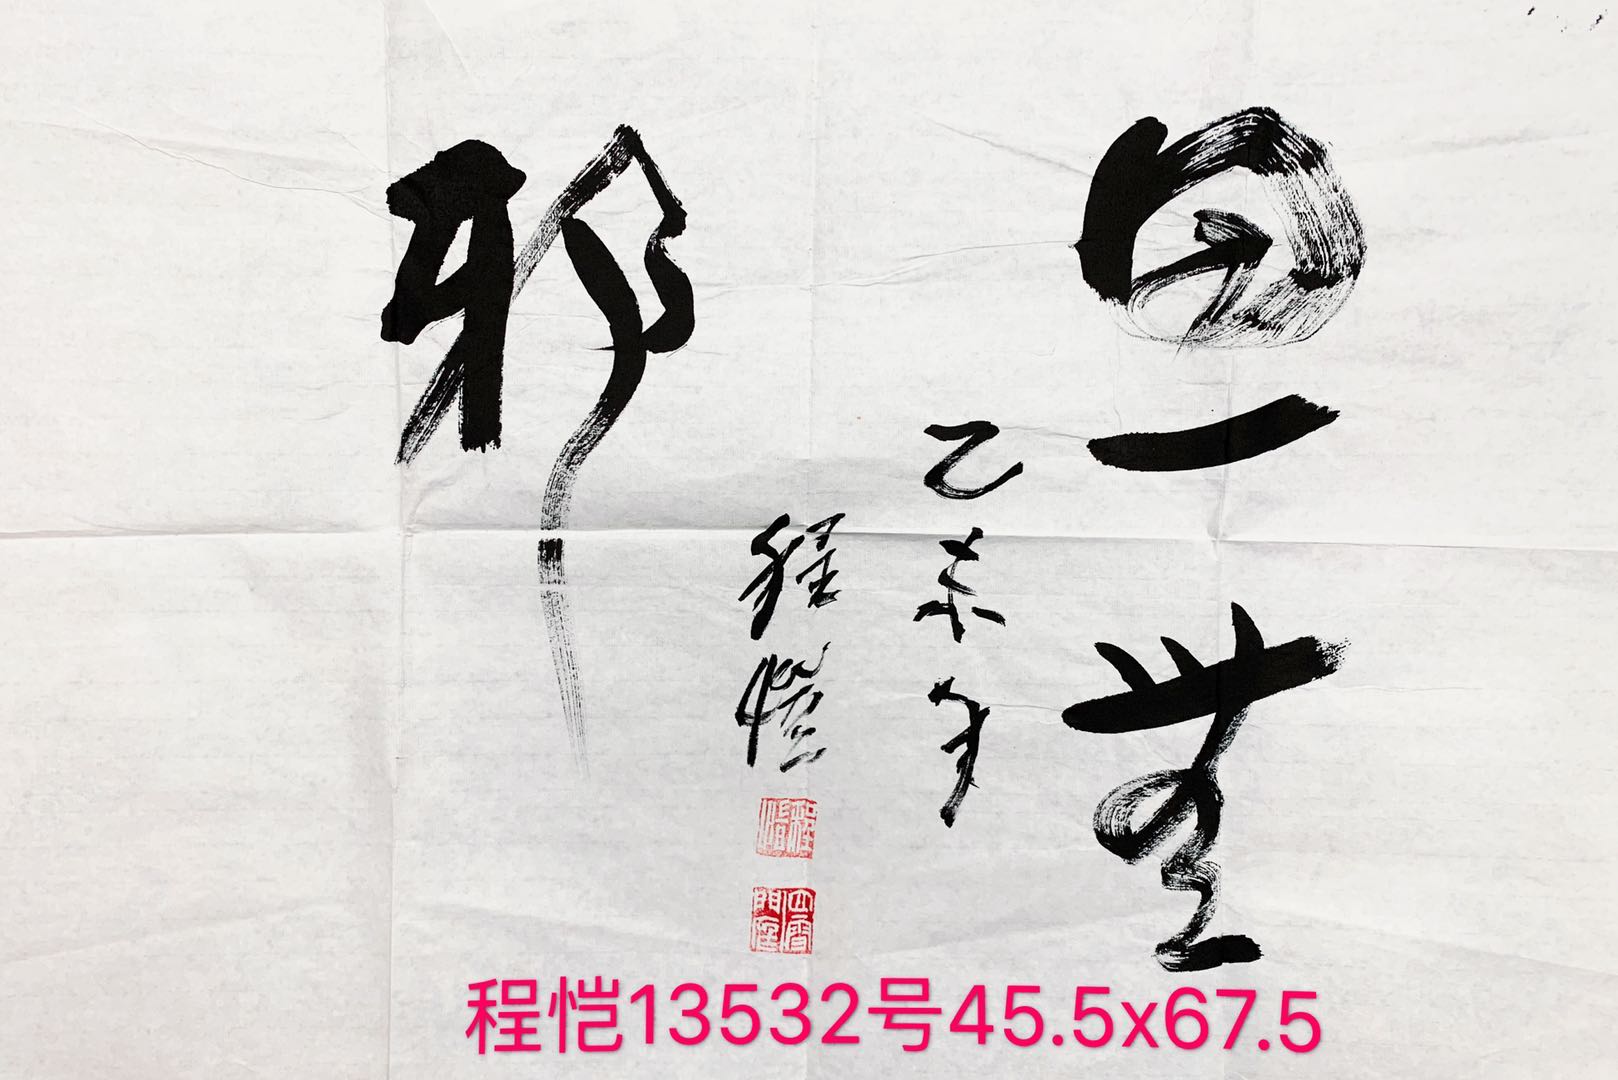 思無
邪
乙未年
程愷
程恺13532号45.5x67.5